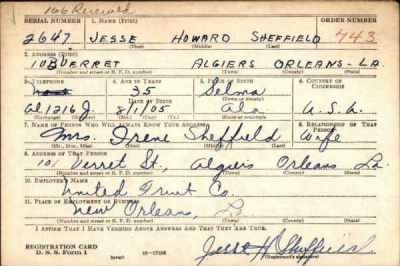 166 Received
SERIAL NUMBER 1. NAME (Print) ORDER NUMBER
2647 JESSE HOWARD SHEFFIELD 743
(First) (Middle) (Last)
2. ADDRESS (Print)
VERRET ALGIERS ORLEANS - LA.
(Number and street or R. F. D. number) (Town) (County) (State)
3. TELEPHONE 4. AGE IN YEARS 5. PLACE OF BIRTH 6. COUNTRY OF CITIZENSHIP
35 Selma
DATE OF BIRTH (Town or county)
Al 1216 J. 8/1/05 Ala. U.S.A.
(Exchange) (Number) (Mo.) (Day) (Yr.) (State or country)
7. NAME OF PERSON WHO WILL ALWAYS KNOW YOUR ADDRESS 8. RELATIONSHIP OF THAT PERSON
Mrs. Irene Sheffield Wife
(Mr., Mrs., Miss) (First) (Middle) (Last)
9. ADDRESS OF THAT PERSON
101 Verret St., Algiers Orleans La.
(Number and street or R. F. D. number) (Town) (County) (State)
10. EMPLOYER'S NAME
United Fruit Co.
11. PLACE OF EMPLOYMENT OR BUSINESS
New Orleans, La.
(Number and street or R. F. D. number) (Town) (County) (State)
I AFFIRM THAT I HAVE VERIFIED ABOVE ANSWERS AND THAT THEY ARE TRUE.
REGISTRATION CARD
D. S. S. Form 1 (over) 16-17105 Jesse H Sheffield
(Registrant's signature)